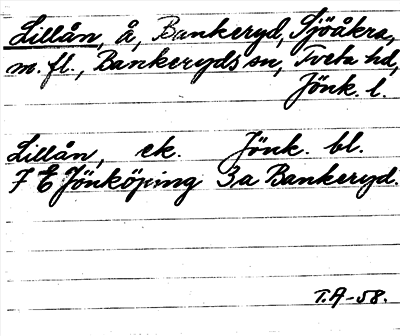 Lillån, å, Bankeryd, Sjöåkra,
m. fl., Bankeryds sn, Tveta hd,
Jönk. l.
Lillån, ek. Jönk. bl.
7 E Jönköping 3a Bankeryd.
T.A-58.